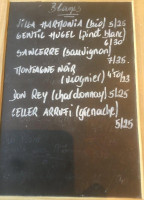 Blancs
VILLA HARMONIA (bio) 5/25
GENTIL HUGEL (pinot blanc) 6/30
SANCERRE (Sauvignon) 7/35.
MONTAGNE NOIR
(viognier) 4⁵⁰/23
DON REY (chardonnay) 5/25
CELLER ARRUFI (grenache)
5/25